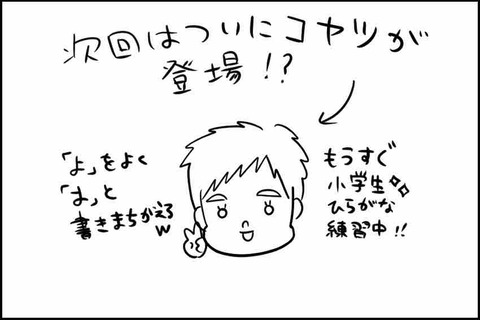 次回はついにコヤツが
登場!?
もうすぐ
小学生
ひらがな
練習中!!
「よ」をよく
「は」と
書きまちがえるw